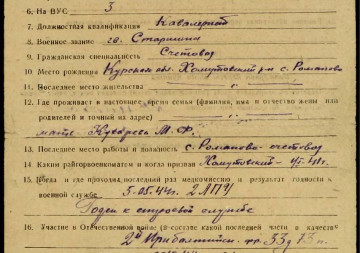 6. На ВУС 3
7. Должностная квалификация Кавалерист
8. Военное звание гв. Старшина
9. Гражданская специальность Счетовод
10. Место рождения Курская обл. Хомутовский р-н с. Романово
11. Последнее место жительства " "
12. Где проживает в настоящее время семья (фамилия, имя и отчество жены или
родителей и точный их адрес)
мать М. Ф.
13. Последнее место работы и должность с. Романово - счетовод
14. Каким райгорвоенкоматом и когда призван Хомутовский
15. Когда и где проходил последний раз медкомиссию и результат годности к
военной службе 5.05.44г. 2 ЛПУ
Годен к строевой службе
16. Участие в Отечественной войне (в составе какой последней части и в качестве
2й Прибалтийск. фр. 33